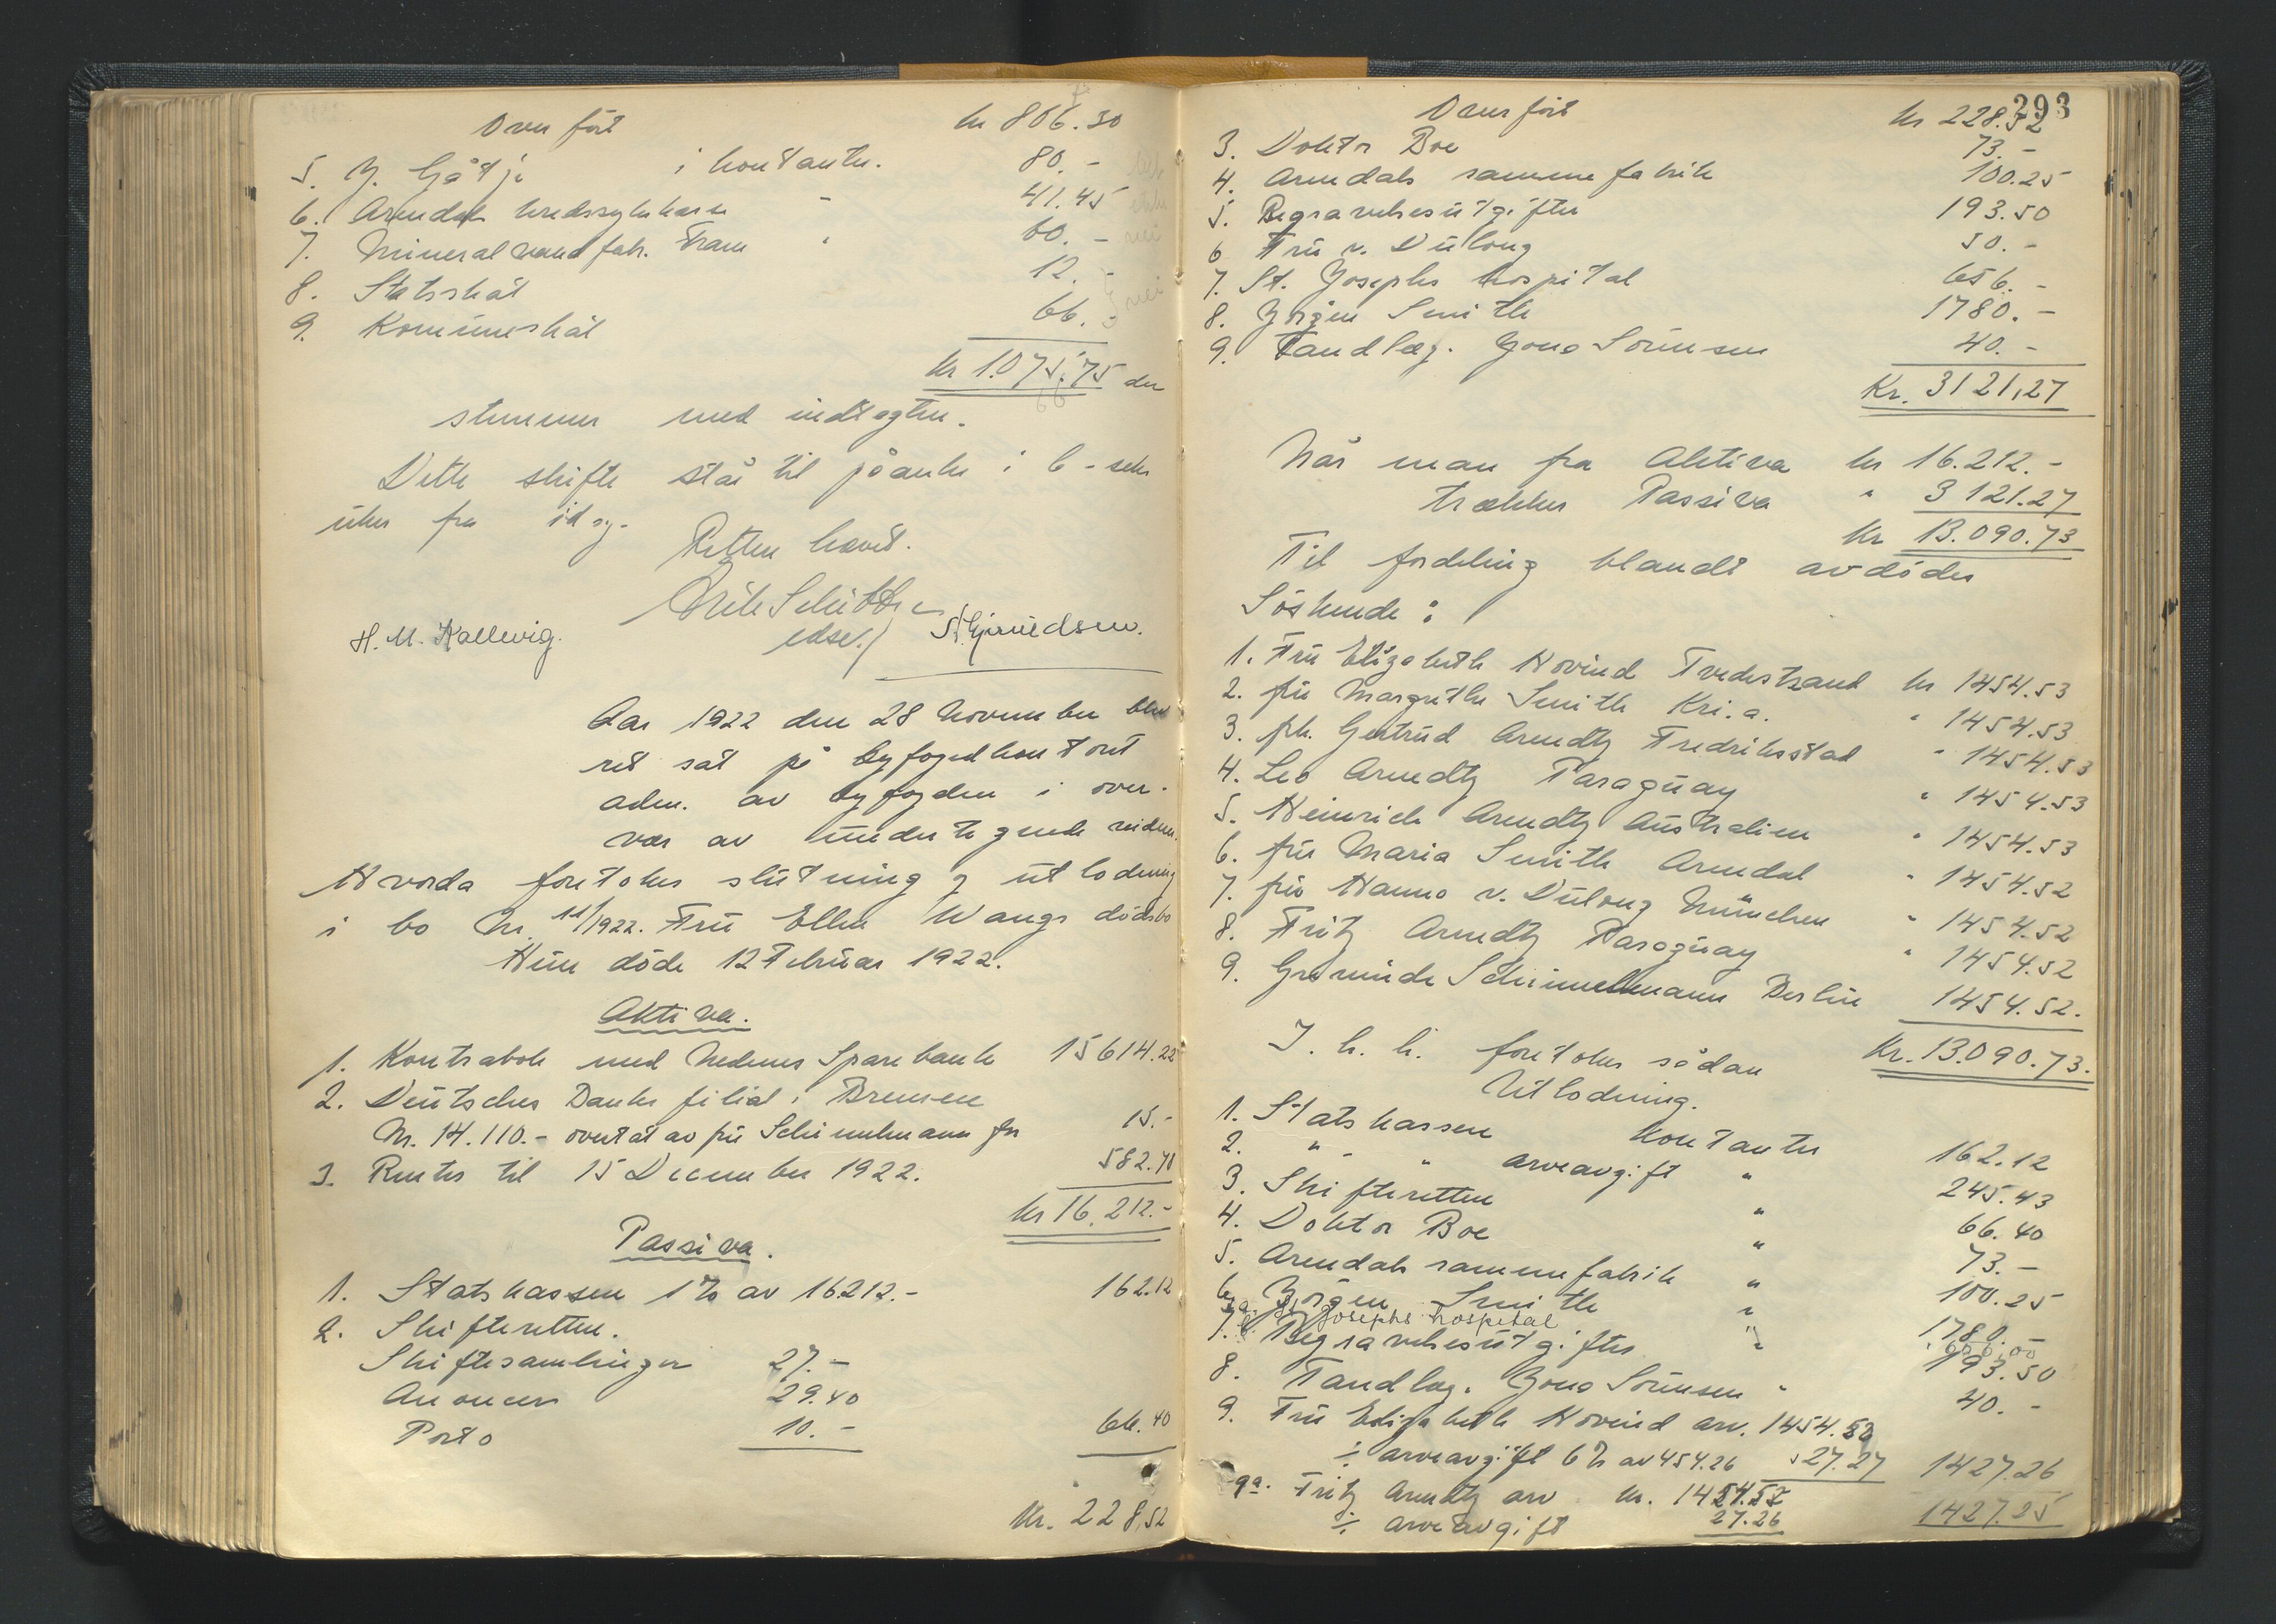 Overført kr 806.30
5. J. Gåtje i kontanter. 80.-
6. Arendals kredssykekasse " 41.45
7. Mineralvandfabr. Fram " 60.-
8. Statsskat 12.-
9. Kommuneskat 66.-
kr 1.075.75 der
stemmer med indtægten.
Dette skifte står til påanke i 6 - seks
uker fra idag.
Retten hævet.
H. M. Kallevig. edsv.
Aar 1922 den 28 November blev
ret sat på byfogedkontoret
adm. av byfogden i over-
vær av undertegnede vidner.
Hvorda foretokes slutning og utlodning
i bo Nr. 11/1922. Frú Ellen Wangs dødsbo
Hun døde 12 Februar 1922.
Aktiva.
1. Kontrabok med Nedenes Sparebank 15614.22
2. Deutsches Banks filial i Bremen
Nr. 14.110.- overtat av frú Schimmelmann for 15.-
3. Renter til 15 December 1922. 582.78
kr 16.212.-
Passiva.
1. Statskassen 1% av 16212.- 162.12
2. Skifteretten.
Skiftesamlinger 27.-
Anoncer 29.40
Porto 10.- 66.40
Kr. 228,52
293
Overført kr 228.52
3. Doktor Boe 73.-
4. Arendals rammefabrik 100.25
5. Begravelsesutgifter 193.50
6 Frú v. Dulong 50.-
7. St. Josephs hospital 656.-
8. Jørgen Smith 1780.-
9. Tandlæg. Jons Sørensen 40.-
Kr. 3121,27
Når man fra Aktiva kr 16.212.-
trækkes Passiva " 3121.27
kr 13.090.73
Til fordeling blandt avdødes
Søskende:
1. Frú Elizabeth Hovind Tvedestrand kr 1454.53
2. frú Margrethe Smith Kri.a. " 1454.53
3. frk. Gertrud Arendtz Fredriksstad " 1454.53
4. Leo Arendtz Paraguay " 1454.53
5. Heinrich Arendtz Australien " 1454.53
6. frú Maria Smith Arendal " 1454.52
7. frú Hanno v. Dulong München " 1454.52
8. Fritz Arendtz Paraguay " 1454.52
9. Schimmelmann Berlin 1454.52.
Kr. 13.090.73.
I. h. h. foretokes sådan
Utlodning.
1. Statskassen Kontanter 162.12
2. " - " arveavgift " 245.43
3. Skifteretten " 66.40
4. Doktor Boe " 73.-
5. Arendals rammefabrik " 100.25
6. Jørgen Smith " 1780.-
St. Josephs hospital " 656,00
7. Begravelsesutgifter " 193.50
8. Tandlæg. Jons Sørensen " 40.-
9. Frú Elizabeth Hovind arv. 1454.53
÷ arveavgift 6% av 454.26 27.27 1427.26
9a. Fritz Arendtz arv kr. 1454.52
÷ arveavgift 27.26 1427.25